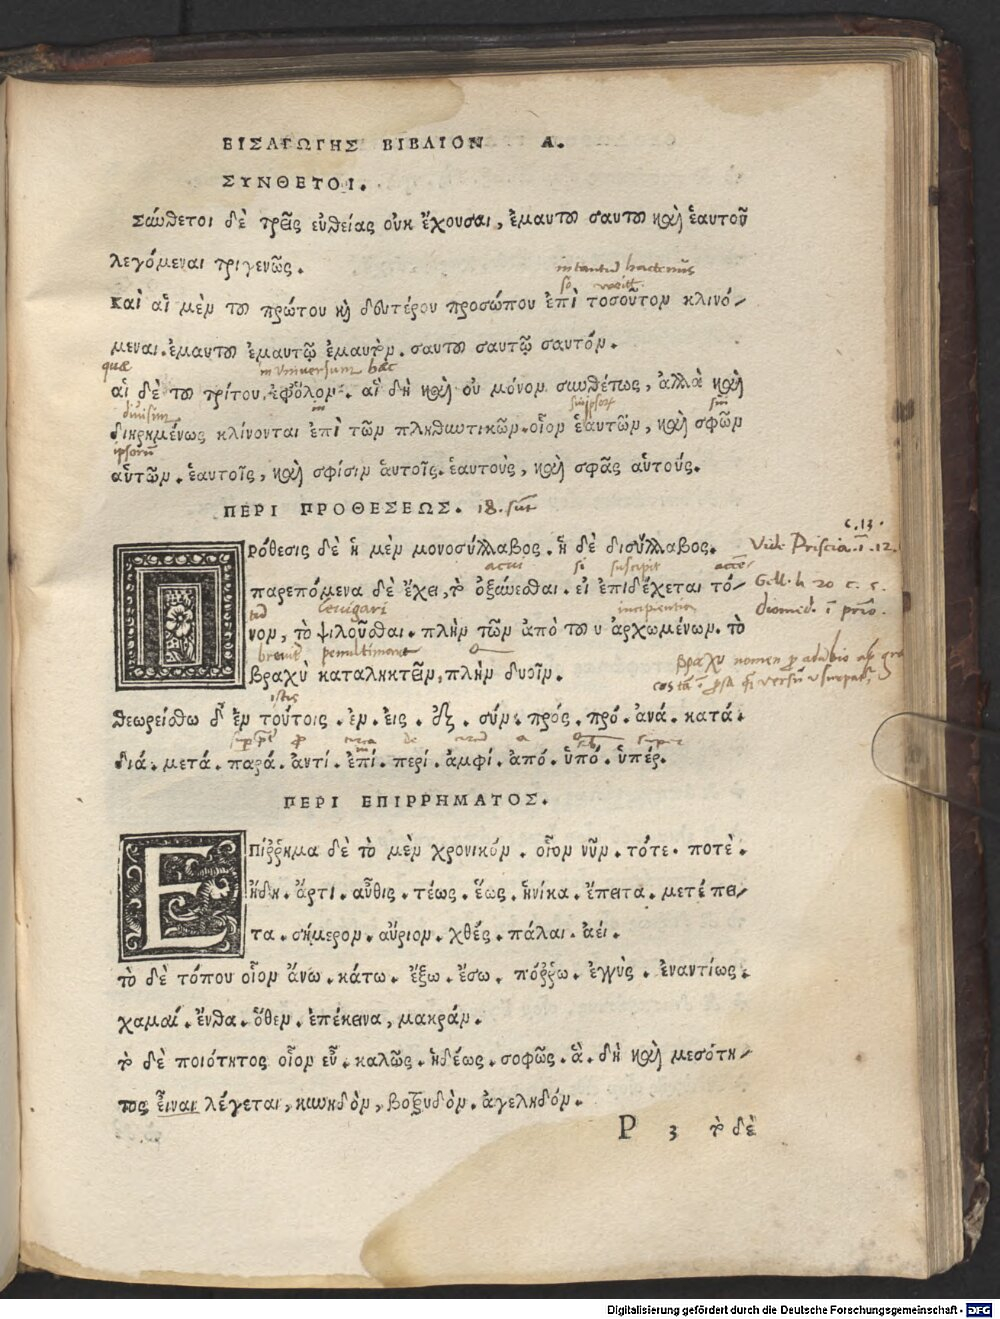 ΕΙΣΑΓΩΓΗΣ ΒΙΒΛΙΟΝ Α.
ΣΥΝΘΕΤΟΙ.
Σύνθετοι δὲ τρεῖς εὐθείας οὐκ ἔχουσαι, ἐμαυτοῦ σαυτοῦ καὶ ἑαυτοῦ
λεγόμεναι τριγενῶς.
intantum hactenus
Καὶ αἱ μὲν τοῦ πρώτου καὶ δευτέρου προσώπου ἐπὶ τοσοῦτον κλινό-
μεναι. ἐμαυτοῦ ἐμαυτῷ ἐμαυτόν. σαυτοῦ σαυτῷ σαυτόν.
quae in universum haec
αἱ δὲ τοῦ τρίτου ἐφόλον. αἳ δὴ καὶ οὐ μόνον συνθέτως, ἀλλὰ καὶ
divisim
διῃρημένως κλίνονται ἐπὶ τῶν πληθυντικῶν. οἷον ἑαυτῶν, καὶ σφῶν
ipsorum
αὑτῶν. ἑαυτοῖς, καὶ σφίσιν ἁυτοῖς. ἑαυτοὺς, καὶ σφᾶς αὑτούς.
ΠΕΡΙ ΠΡΟΘΕΣΕΩΣ. 18. sūt
c. 13.
ΠΡόθεσις δὲ ἡ μὲν μονοσύλλαβος. ἡ δὲ δισύλλαβος. Vide Priscia. i. 12.
acui si suscipit
παρεπόμενα δὲ ἔχει, τὸ ὀξύνεσθαι. εἰ ἐπιδέχεται τό- Gell. li. 20 c. 5.
incipientia diomed. i primo.
νον, τὸ ψιλοῦσθαι. πλὴν τῶν ἀπὸ τοῦ υ ἀρχωμένων. τὸ
βραχὺ nomen
βραχὺ καταλήκτειν, πλὴν δυοῖν.
istis
θεωρείσθω δ' ἐν τούτοις. ἐν. εἰς. ἐξ. σύν. πρός. πρό. ἀνά. κατά.
διά. μετά. παρά. ἀντί. ἐπί. περί. ἀμφί. ἀπό. ὑπό. ὑπέρ.
ΠΕΡΙ ΕΠΙΡΡΗΜΑΤΟΣ.
Ἐπίῤῥημα δὲ τὸ μὲν χρονικόν. οἷον νῦν. τότε. ποτὲ.
ἤδη. ἄρτι. αὖθις. τέως. ἕως. ἡνίκα. ἔπειτα. μετέπει-
τα. σήμερον. αὔριον. χθές. πάλαι. ἀεί.
τὸ δὲ τόπου οἷον ἄνω. κάτω. ἔξω. ἔσω. πόῤῥω. ἐγγὺς. ἐναντίως.
χαμαί. ἔνθα. ὅθεν. ἐπέκεινα, μακράν.
τὸ δὲ ποιότητος οἷον εὖ. καλῶς. ἡδέως. σοφῶς. ἃ. δὴ καὶ μεσότη-
τος εἶναι λέγεται, κυνηδὸν, βοτρυδὸν. ἀγεληδόν.
P 3 τὸ δὲ
Digitalisierung gefördert durch die Deutsche Forschungsgemeinschaft - DFG